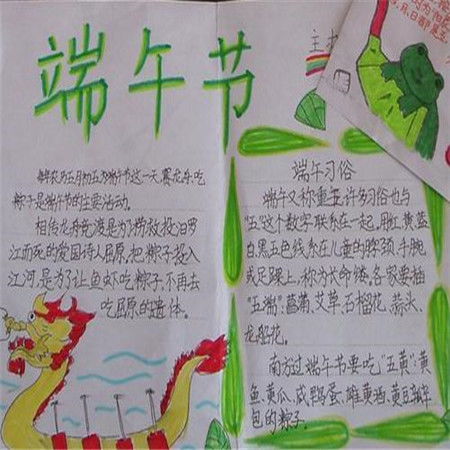 端午节
每年农历五月初五为端午节这一天,赛龙舟、吃
粽子是端午节的主要活动。
相传龙舟竞渡是为了捞救投汨罗
江而死的爱国诗人屈原,把粽子投入
江河,是为了让鱼虾吃粽子,不再去
吃屈原的遗体。
主
端午习俗
端午又称重五,许多习俗也与
“五”这个数字联系在一起,用红黄蓝
白黑五色线系在儿童的脖颈、手腕
或足踝上,称为长命缕,各家要插
“五端”:菖蒲、艾草、石榴花、蒜头、
龙船花。
南方过端午节要吃“五黄”:黄
鱼、黄瓜、咸鸭蛋、雄黄酒、黄豆瓣
包的粽子。